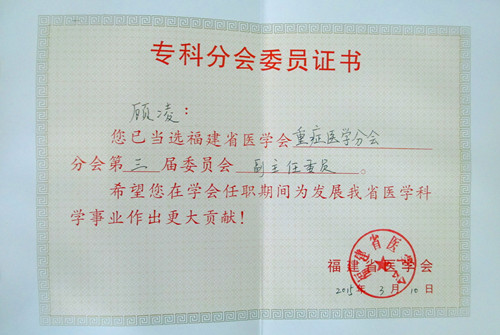 专科分会委员证书
顾凌：
您已当选福建省医学会重症医学分会
分会第三届委员会副主任委员。
希望您在学会任职期间为发展我省医学科
学事业作出更大贡献！
福建省医学会
福建省医学会
2015年3月10日